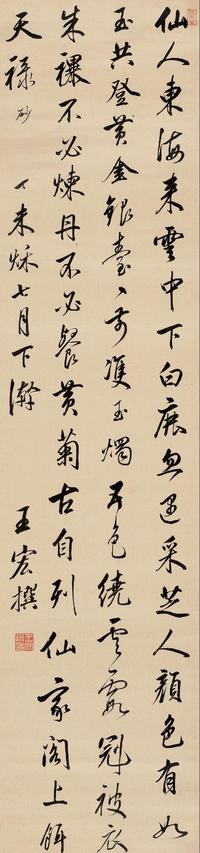 仙人東海來雲中下白鹿忽遇采芝人顏色有如
玉共登黃金銀臺〻前雙玉燭五色繞雲霞冠被衣
朱襮不必煉丹不必餐黃菊古自列仙家閣上餌
天祿 砂 丁未秋七月下澣 王宏撰